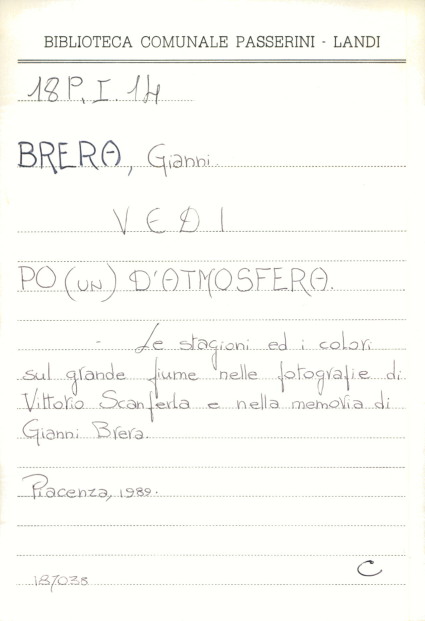 BIBLIOTECA COMUNALE PASSERINI - LANDI
18P. I. 14
BRERA, Gianni.
VEDI
PO (UN) D'ATMOSFERA.
- Le stagioni ed i colori
sul grande fiume nelle fotografie di
Vittorio Scanferla e nella memoria di
Gianni Brera.
Piacenza, 1989.
C
187038